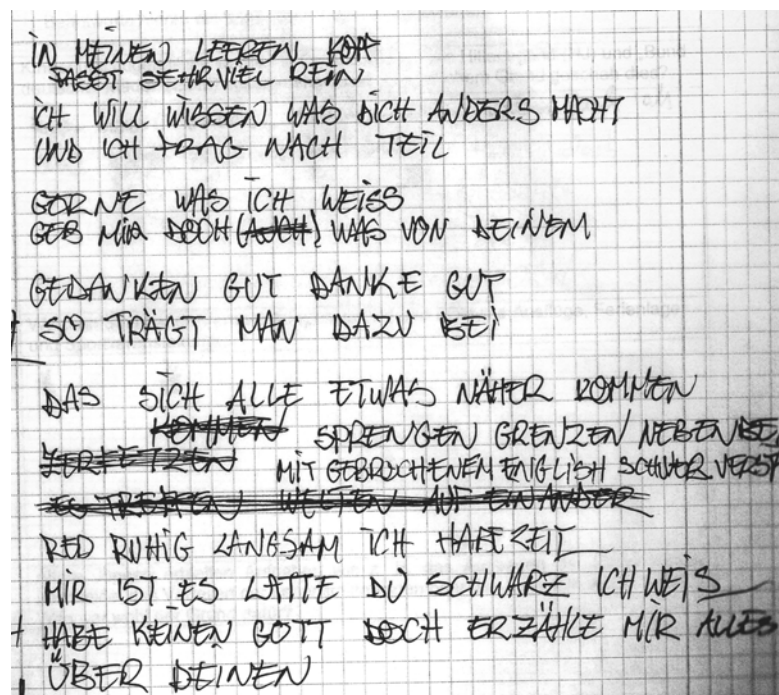 IN MEINEN LEEREN KOPF
PASST SEHR VIEL REIN
ICH WILL WISSEN WAS DICH ANDERS MACHT
UND ICH FRAG NACH TEIL
GERNE WAS ICH WEISS
GEB MIR DOCH (AUCH) WAS VON DEINEM
GEDANKEN GUT DANKE GUT
SO TRÄGT MAN DAZU BEI
DAS SICH ALLE ETWAS NÄHER KOMMEN
KOMMEN SPRENGEN GRENZEN NEBENBEI
ZERFETZEN MIT GEBROCHENEM ENGLISH SCHWER VERST
ES TREFFEN WELTEN AUF EINANDER
RED RUHIG LANGSAM ICH HABE ZEIT
MIR IST ES LATTE DU SCHWARZ ICH WEIS
HABE KEINEN GOTT DOCH ERZÄHLE MIR ALLES
ÜBER DEINEN